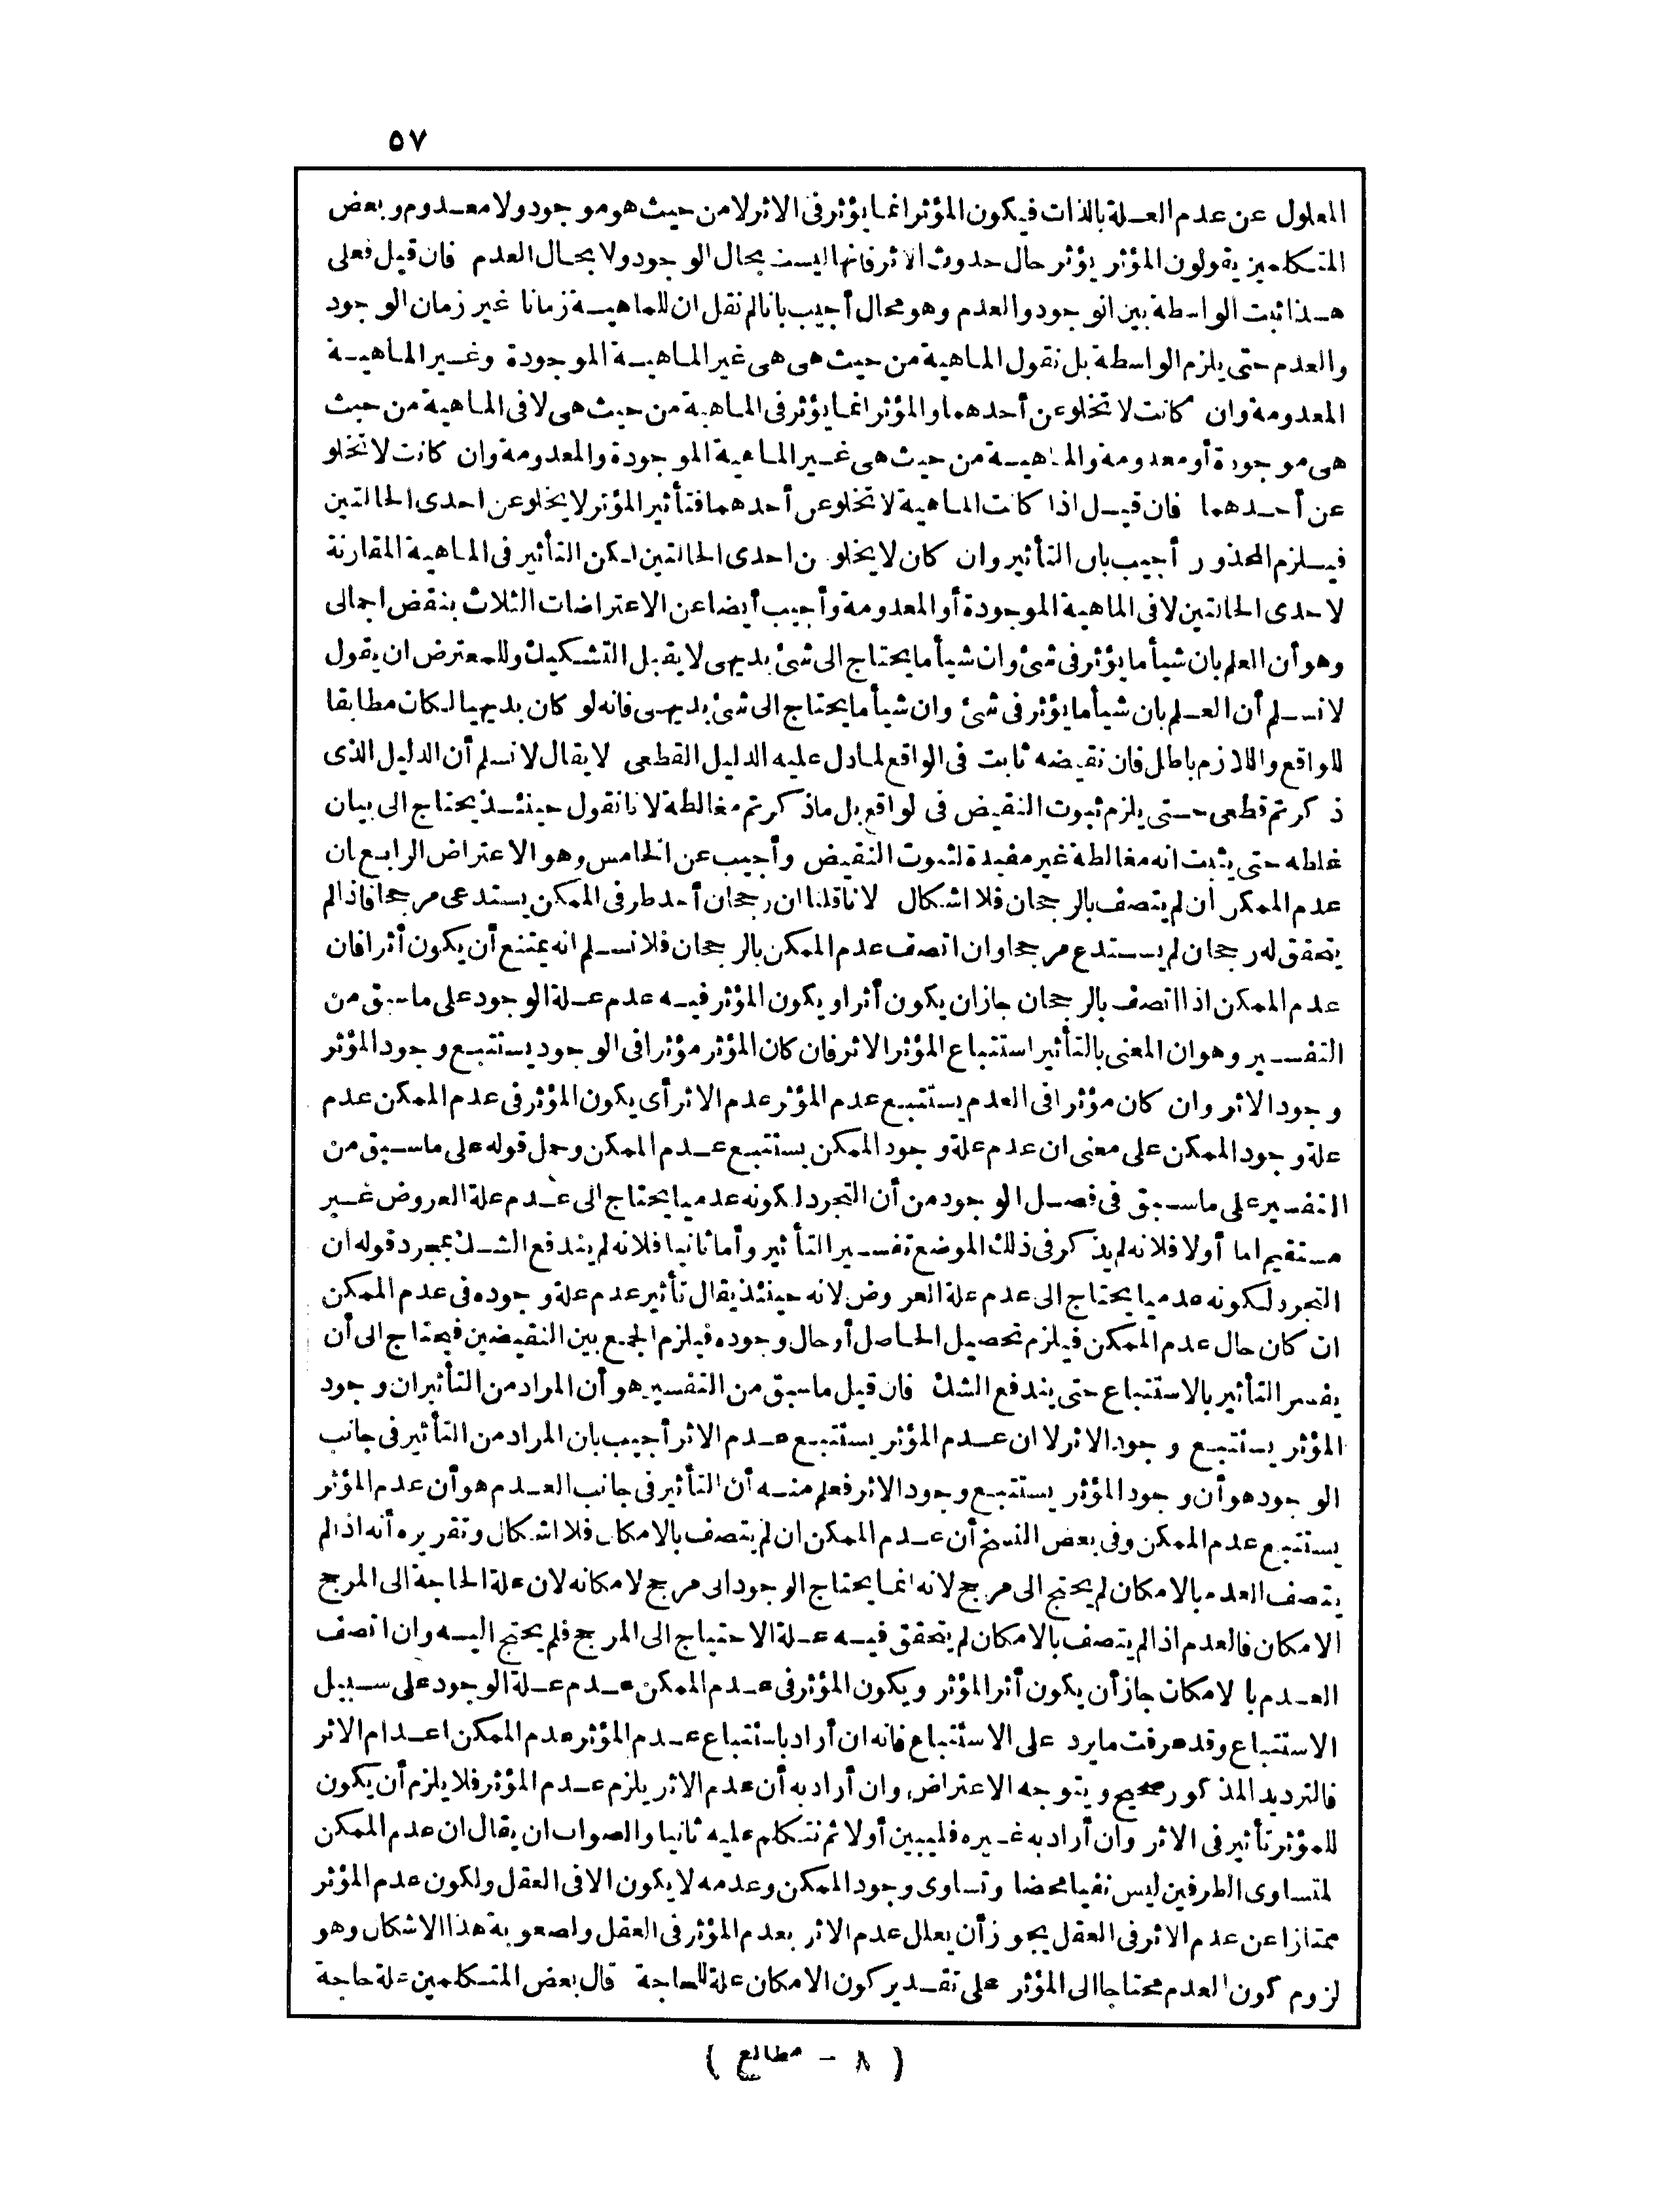 ٥٧
المعلول عن عدم العلة بالذات فيكون المؤثر انما يؤثر فى الاثر لا من حيث هو موجود ولا معدوم و بعض
المتكلمين يقولون المؤثر يؤثر حال حدوث الاثر فانها ليست بحال الوجود ولا بحال العدم فان قيل فعلى
هذا ثبت الواسطة بين الوجود والعدم وهو محال أجيب بانا لم نقل ان للماهية زمانا غير زمان الوجود
والعدم حتى يلزم الواسطة بل نقول الماهية من حيث هى هى غير الماهية الموجودة وغير الماهية
المعدومة وان كانت لا تخلو عن أحدهما والمؤثر انما يؤثر فى الماهية من حيث هى لا فى الماهية من حيث
هى موجودة أو معدومة والماهية من حيث هى غير الماهية الموجودة والمعدومة وان كانت لا تخلو
عن أحدهما فان قيل اذا كانت الماهية لا تخلو عن أحدهما فتأثير المؤثر لا يخلو عن احدى الحالتين
فيلزم المحذور أجيب بان التأثير وان كان لا يخلو عن احدى الحالتين لكن التأثير فى الماهية المقارنة
لاحدى الحالتين لا فى الماهية الموجودة أو المعدومة وأجيب أيضا عن الاعتراضات الثلاث بنقض اجمالى
وهو أن العلم بان شيأ ما يؤثر فى شئ وان شيأ ما يحتاج الى شئ بديهى لا يقبل التشكيك وللمعترض ان يقول
لا نسلم أن العلم بان شيأ ما يؤثر فى شئ وان شيأ ما يحتاج الى شئ بديهى فانه لو كان بديهيا لكان مطابقا
للواقع واللازم باطل فان نقيضه ثابت فى الواقع لما دل عليه الدليل القطعى لا يقال لا نسلم أن الدليل الذى
ذكرتم قطعى حتى يلزم ثبوت النقيض فى الواقع بل ما ذكرتم مغالطة لانا نقول حينئذ يحتاج الى بيان
غلطه حتى يثبت انه مغالطة غير مفيدة لثبوت النقيض وأجيب عن الخامس وهو الاعتراض الرابع ان
عدم الممكن ان لم يتصف بالرجحان فلا اشكال لانا قلنا ان رجحان أحد طرفى الممكن يستدعى مرجحا فاذا لم
يتحقق له رجحان لم يستدع مرجحا وان اتصف عدم الممكن بالرجحان فلا نسلم انه يمتنع أن يكون أثرا فان
عدم الممكن اذا اتصف بالرجحان جاز ان يكون أثرا و يكون المؤثر فيه عدم علة الوجود على ما سبق من
التفسير وهو ان المعنى بالتأثير استتباع المؤثر الاثر فان كان المؤثر مؤثرا فى الوجود يستتبع وجود المؤثر
وجود الاثر وان كان مؤثرا فى العدم يستتبع عدم المؤثر عدم الاثر أى يكون المؤثر فى عدم الممكن عدم
علة وجود الممكن على معنى ان عدم علة وجود الممكن يستتبع عدم الممكن وحمل قوله على ما سبق من
التفسير على ما سبق فى فصل الوجود من أن التجرد لكونه عدميا يحتاج الى عدم علة العروض غير
مستقيم اما أولا فلانه لم يذكر فى ذلك الموضع تفسير التأثير وأما ثانيا فلانه لم يندفع الشك بمجرد قوله ان
التجرد لكونه عدميا يحتاج الى عدم علة العروض لانه حينئذ يقال تأثير عدم علة وجوده فى عدم الممكن
ان كان حال عدم الممكن فيلزم تحصيل الحاصل أو حال وجوده فيلزم الجمع بين النقيضين فيحتاج الى أن
يفسر التأثير بالاستتباع حتى يندفع الشك فان قيل ما سبق من التفسير هو أن المراد من التأثير ان وجود
المؤثر يستتبع وجود الاثر لا ان عدم المؤثر يستتبع عدم الاثر أجيب بان المراد من التأثير فى جانب
الوجود هو أن وجود المؤثر يستتبع وجود الاثر فعلم منه أن التأثير فى جانب العدم هو أن عدم المؤثر
يستتبع عدم الممكن وفى بعض النسخ أن عدم الممكن ان لم يتصف بالامكان فلا اشكال وتقريره أنه اذا لم
يتصف العدم بالامكان لم يحتج الى مرجح لانه انما يحتاج الوجود الى مرجح لامكانه لان علة الحاجة الى المرجح
الامكان فالعدم اذا لم يتصف بالامكان لم يتحقق فيه علة الاحتياج الى المرجح فلم يحتج اليه وان اتصف
العدم بالامكان جاز أن يكون أثر المؤثر ويكون المؤثر فى عدم الممكن عدم علة الوجود على سبيل
الاستتباع وقد عرفت ما يرد على الاستتباع فانه ان أراد باستتباع عدم المؤثر عدم الممكن اعدام الاثر
فالترديد المذكور صحيح ويتوجه الاعتراض وان أراد به أن عدم الاثر يلزم عدم المؤثر فلا يلزم أن يكون
للمؤثر تأثير فى الاثر وان أراد به غيره فليبين أولا ثم نتكلم عليه ثانيا والصواب ان يقال ان عدم الممكن
المتساوى الطرفين ليس نفيا محضا وتساوى وجود الممكن وعدمه لا يكون الا فى العقل ولكون عدم المؤثر
ممتازا عن عدم الاثر فى العقل يجوز أن يعلل عدم الاثر بعدم المؤثر فى العقل ولصعوبة هذا الاشكال وهو
لزوم كون العدم محتاجا الى المؤثر على تقدير كون الامكان علة للحاجة قال بعض المتكلمين علة حاجة
( ٨ - مطالع )